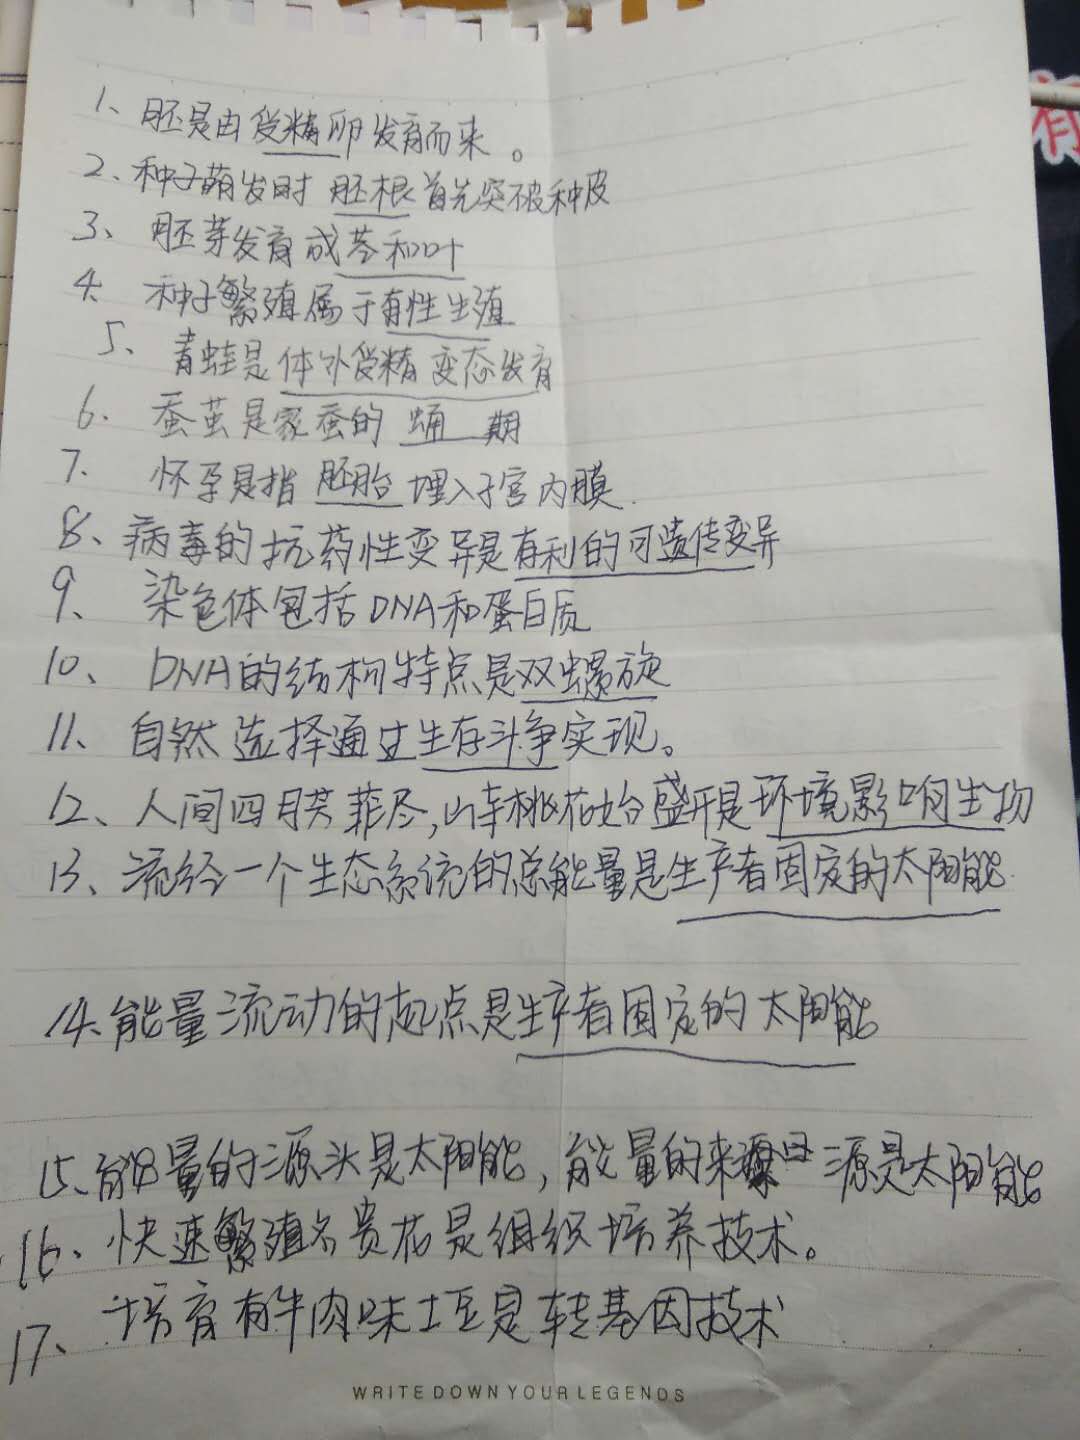 1、胚是由受精卵发育而来。
2、种子萌发时 胚根首先突破种皮
3、胚芽发育成茎和叶
4、种子繁殖属于有性生殖
5、青蛙是体外受精 变态发育
6、蚕茧是家蚕的 蛹 期
7、怀孕是指 胚胎 埋入子宫内膜.
8、病毒的抗药性变异是有利的可遗传变异
9、染色体包括DNA和蛋白质
10、DNA的结构特点是双螺旋
11、自然选择通过生存斗争实现。
12、人间四月芳菲尽,山寺桃花始盛开是环境影响生物
13、流经一个生态系统的总能量是生产者固定的太阳能.
14、能量流动的起点是生产者固定的太阳能
15、能量的源头是太阳能,能量的来源是太阳能
16、快速繁殖名贵花是组织培养技术。
17、培育有牛肉味土豆是转基因技术
WRITE DOWN YOUR LEGENDS
有